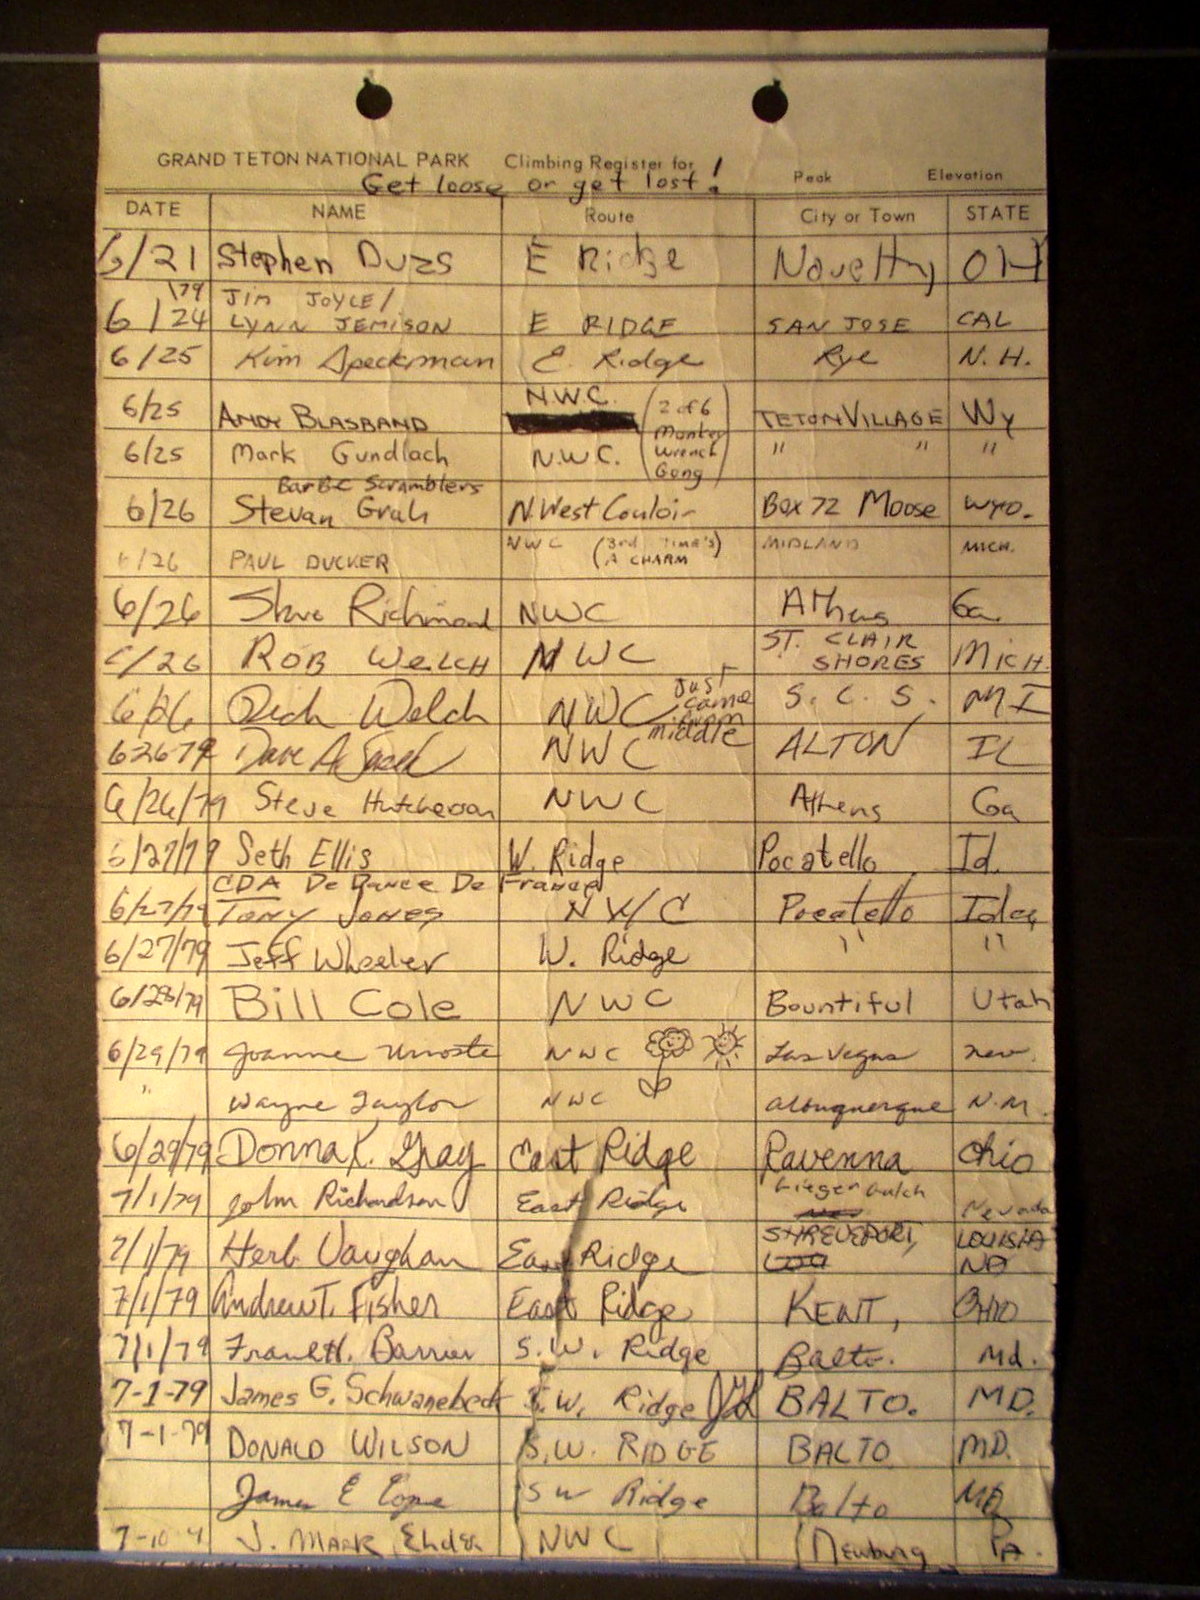 GRAND TETON NATIONAL PARK Climbing Register for Peak Elevation
Get loose or get lost!
DATE NAME Route City or Town STATE
6/21 Stephen E Ridge Novelty OH
/79 JIM JOYCE/
6/24 LYNN JEMISON E RIDGE SAN JOSE CAL
6/25 Kim Speckman E. Ridge Rye N.H.
6/25 ANDY BLASBAND N.W.C. (2 of 6 TETON VILLAGE Wy
6/25 Mark Gundlach N.W.C. Monkey Wrench Gang) " " "
BarBC Scramblers
6/26 Stevan Grah N.West Couloir Box 72 Moose Wyo.
6/26 PAUL DUCKER NWC (3rd Time's A CHARM) MIDLAND MICH.
6/26 Steve Richmond NWC Athens Ga
6/26 ROB WELCH NWC ST. CLAIR SHORES MICH.
6/26 Rich Welch NWC Just came from middle S.C.S. MI
6-26-79 Dave A NWC ALTON IL
6/26/79 Steve Hutcheson NWC Athens Ga
6/27/79 Seth Ellis W. Ridge Pocatello Id.
CDA De Dance De France
6/27/79 TONY JONES NWC Pocatello Idea
6/27/79 Jeff Wheeler W. Ridge " "
6/28/79 Bill Cole NWC Bountiful Utah
6/29/79 Joanne Urioste NWC Las Vegas nev.
" Wayne Taylor NWC albuquerque N.M.
6/29/79 Donna K. Gray East Ridge Ravenna Ohio
7/1/79 John Richardson East Ridge Gulch Nevada
7/1/79 Herb Vaughan East Ridge SHREVEPORT, LOUISIANA
7/1/79 Andrew T. Fisher East Ridge KENT, OHIO
7/1/79 Frank H. Barrier S.W. Ridge Balto. Md.
7-1-79 James G. Schwanebeck S.W. Ridge BALTO. MD.
7-1-79 DONALD WILSON S.W. RIDGE BALTO MD.
James E Cope SW Ridge Balto MD
7-10 J. MARK NWC Newburg PA.